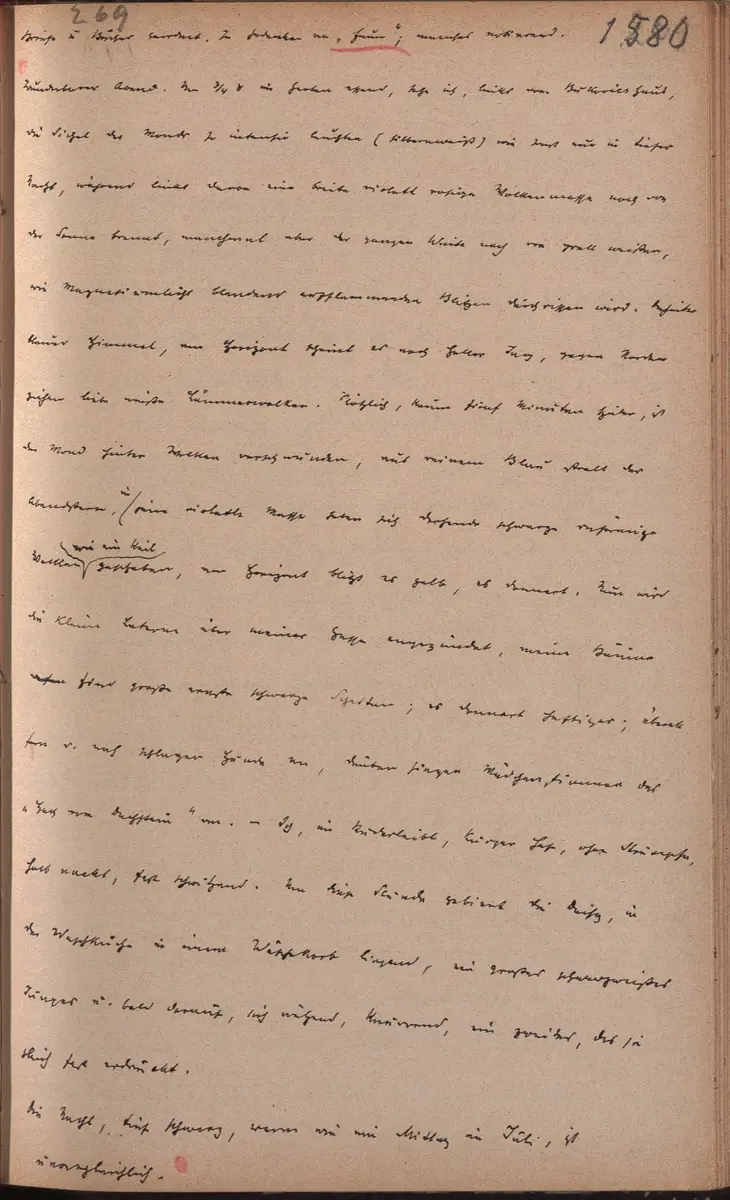 269
1580
Briefe u Bücher geordnet. In Gedanken an „ “; manches notierend.
Wunderbarer Abend. Um 3/4 8 im Garten essend, sehe ich, links vom Haus,
die Sichel des Monds so intensiv leuchten (silberweiß) wie sonst nur in tiefer
Nacht, während links davon eine breite violett rosige Wolkenmasse noch von
der Sonne brennt, manchmal aber der ganzen Weite nach von grell weißen,
wie Magnesiumlicht blendend aufflammenden Blitzen durchrissen wird. Dahinter
blauer Himmel, am Horizont scheint es noch heller Tag, gegen Norden
ziehen weiße Lämmerwolken. Plötzlich, kaum fünf Minuten später, ist
der Mond hinter Wolken verschwunden, aus reinem Blau strahlt der
Abendstern, in jene violette Masse haben sich drohende schwarze
wie ein Keil
Wolken geschoben, am Horizont blitzt es gelb, es donnert. Nun wird
die kleine Laterne über meiner Gasse angezündet, meine Bäume
sind große ernste schwarze Schatten; es donnert heftiger; überall
fern u. nah schlagen Hunde an, draußen singen Mädchenstimmen das
„Hoch vom Dachstein“ an. – Ich, im Ruderleibl, kurzer Hose, ohne Strümpfe,
halb nackt, fast schwitzend. Um diese Stunde gebiert die Daisy, in
der Waschküche in einem Wäschekorb liegend, ein großes schwarzweißes
Junges u. bald darauf, sich wütend, knurrend, ein zweites, das sie
gleich fast erdrückt.
Die Nacht, tief schwarz, warm wie ein Mittag im Juli, ist
unvergleichlich.